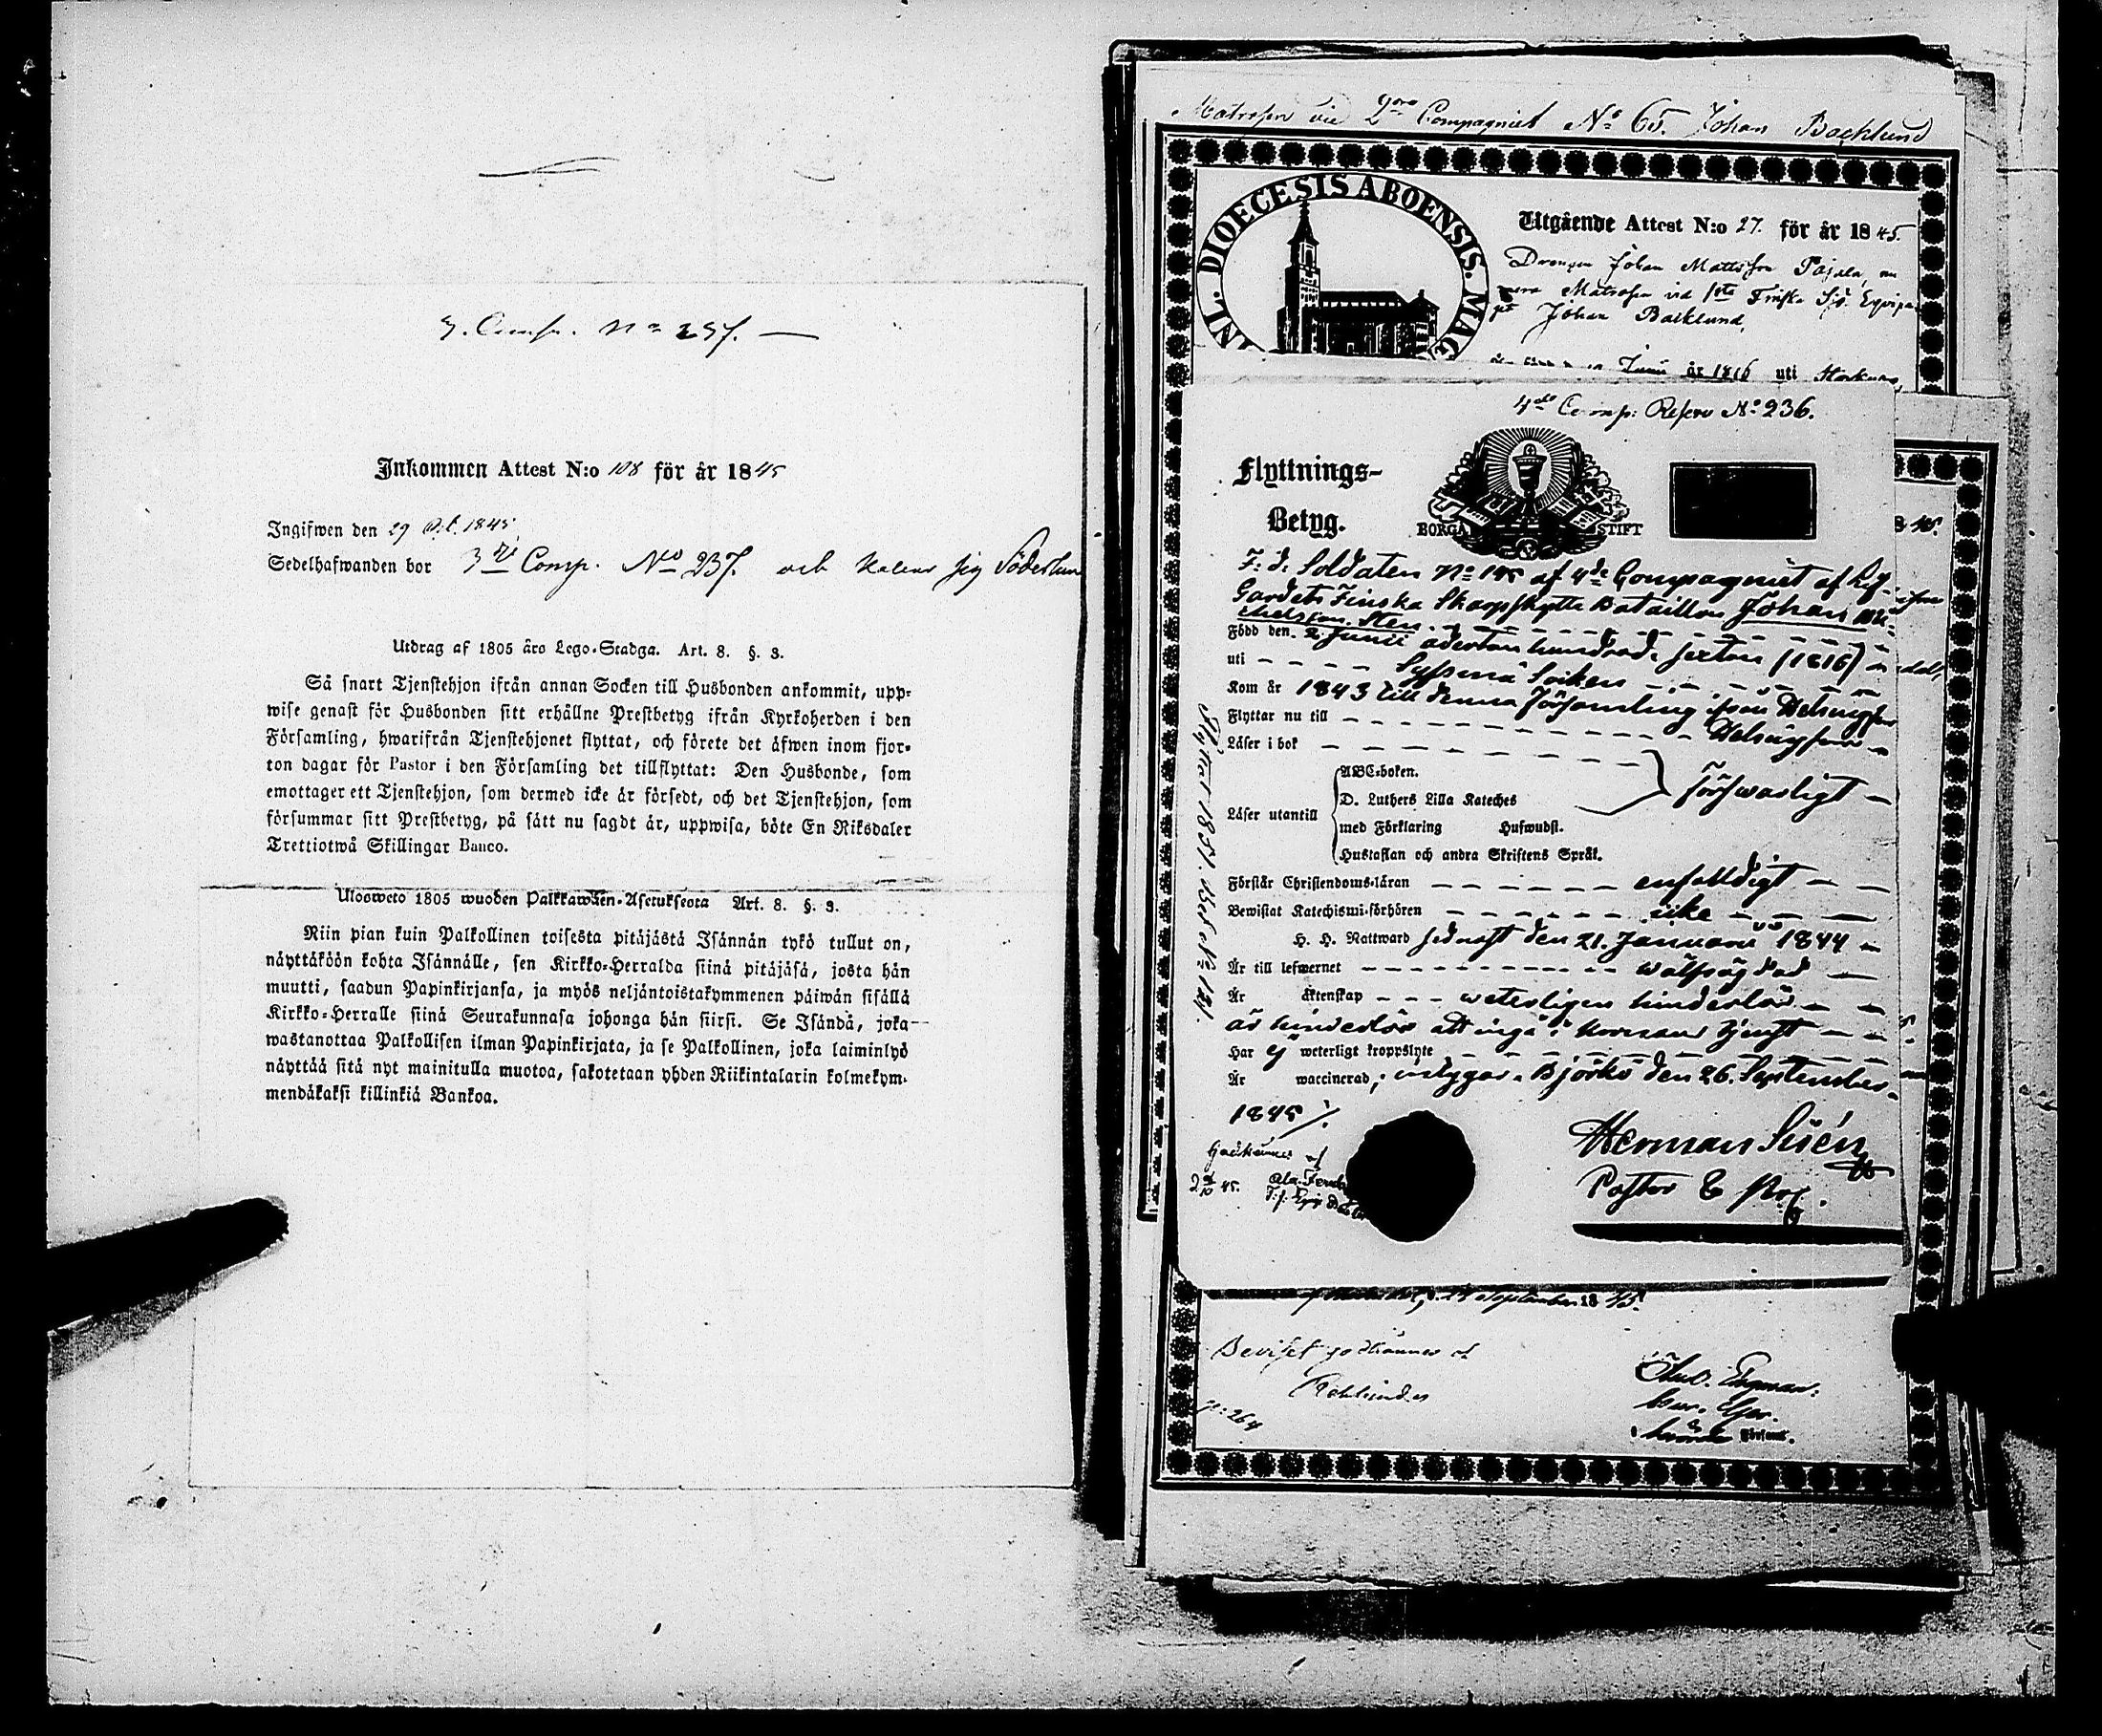 3. Comp. No 237.
Inkommen Attest N:o 108 för år 1845
Ingifwen den 29 Oct. 1845
Sedelhafwanden bor 3die Comp. No 237. och kallar sig Söderlun
Utdrag af 1805 års Lego-Stadga. Art. 8. §. 3.
Så snart Tjenstehjon ifrån annan Socken till Husbonden ankommit, upp-
wise genast för Husbonden sitt erhållne Prestbetyg ifrån Kyrkoherden i den
Församling, hwarifrån Tjenstehjonet flyttat, och förete det äfwen inom fjor-
ton dagar för Pastor i den Församling det tillflyttat: Den Husbonde, som
emottager ett Tjenstehjon, som dermed icke är försedt, och det Tjenstehjon, som
försummar sitt Prestbetyg, på sätt nu sagdt är, uppwisa, böte En Riksdaler
Trettiotwå Skillingar Banco.
Ulosweto 1805 wuoden Palkkawäen-Asetuksesta Art. 8. §. 3.
Niin pian kuin Palkollinen toisesta pitäjästä Isännän tykö tullut on,
näyttäköön kohta Isännälle, sen Kirkko-Herralda siinä pitäjäsä, josta hän
muutti, saadun Papinkirjansa, ja myös neljäntoistakymmenen päiwän sisällä
Kirkko-Herralle siinä Seurakunnasa johonga hän siirsi. Se Isändä, joka
wastanottaa Palkollisen ilman Papinkirjata, ja se Palkollinen, joka laiminlyö
näyttää sitä nyt mainitulla muotoa, sakotetaan yhden Riikintalarin kolmekym-
mendäkaksi killinkiä Bankoa.
Matrosen vid 2dra Compagniet No 65. Johan Backlund
INL. DIOECESIS ABOENSIS. MAG
Utgående Attest N:o 27. för år 1845.
Drengen Johan Mattsson Pajala, nu
mera Matrosen vid 1sta Finska Sjö Equipa
get Johan Backlund,
Junii år 1816 uti
4de Comp: Reserv No 236.
Flyttnings-
Betyg.
BORGÅ STIFT
F: d. Soldaten No 145 af 4de Compagniet af Lif-
Gardets Finska Skarpskytte Bataillon Johan Mi-
chelsson Sten
Född den 2. Junii adertonhundrade sexton (1816)
uti Sysmä Socken
Kom år 1843 till denna Församling ifrån Helsingfors
Flyttar nu till Helsingfors
Läser i bok
Läser utantill
ABC-boken.
D. Luthers Lilla Kateches
med Förklaring Hufwudst.
Hustaflan och andra Skriftens Språk.
försvarligt
Förstår Christendoms-läran enfaldigt
Bewistat Katechismi-förhören icke
H. H. Nattward sednast den 21. Januarii 1844
Är till lefwernet wälfrägdad
Är äktenskap weterligen hinderlös
är hinderlös att ingå i kronans tjenst
Har ej weterligt kroppslyte
Är waccinerad; intygar. Björkö den 26. September
1845
Godkännes af
Herman Sirén
Pastor & Prof.
Flyttat 1851. Bet. No 121.
September 1845.
Beviset godkännes af
p: 264
Församl.